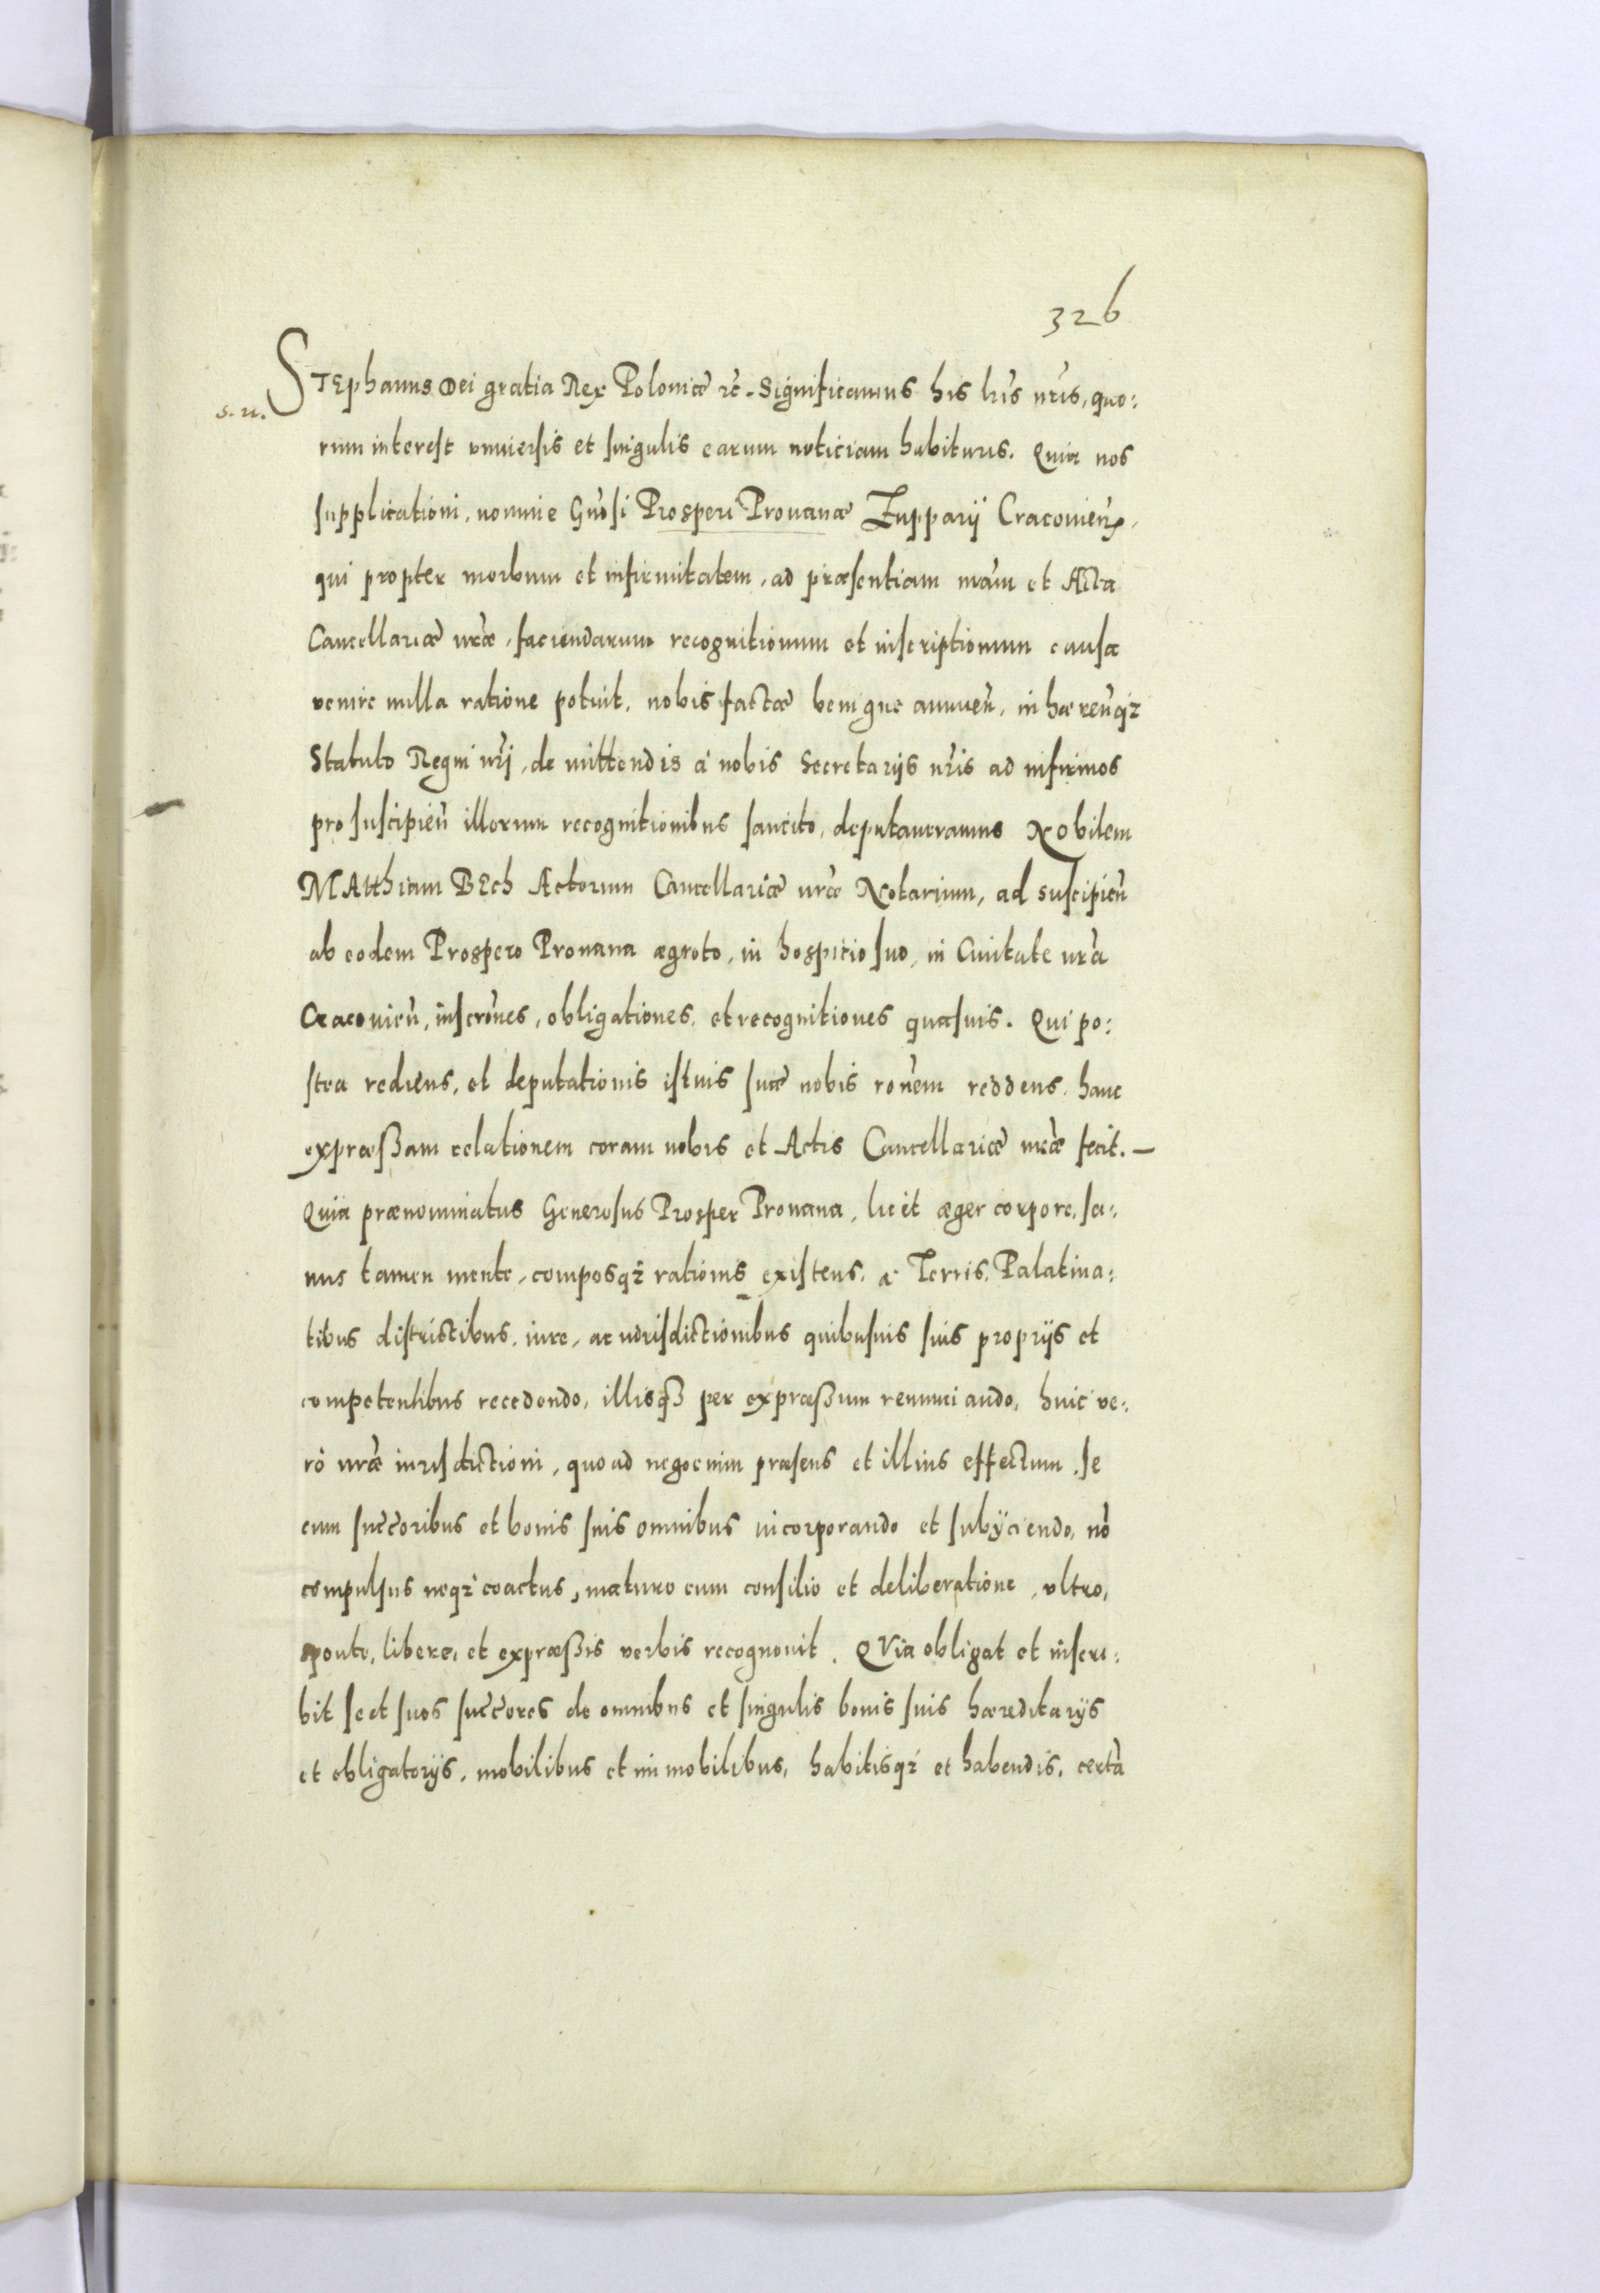 326
s. n.
STEphanus Dei gratia Rex Poloniæ rc̃. Significamus his lr̃is nr̃is, quo:
rum interest vniuersis et singulis earum noticiam habituris. Quia nos
supplicationi, nomine Gñosi Prosperi Prouanæ Zupparij Cracouien̄,
qui propter morbum et infirmitatem, ad præsentiam nr̃am et Acta
Cancellariæ nr̃æ, faciendarum recognitionum et inscriptionum causa
venire nulla ratione potuit, nobis factæ benigne annuen̄, inhæren̄q₃
Statuto Regni nr̃i, de mittendis à nobis Secretarijs nr̃is ad infirmos
pro suscipien̄ illorum recognitionibus sancito, deputaueramus Nobilem
MAtthiam BEch Actorum Cancellariæ nr̃æ Notarium, ad suscipien̄
ab eodem Prospero Prouana ægroto, in hospitio suo, in Ciuitate nr̃a
Cracouien̄, inscrõnes, obligationes, et recognitiones quasuis. Qui po:
stea rediens, et deputationis istius suæ nobis rõnem reddens, hanc
expræßam relationem coram nobis et Actis Cancellariæ nr̃æ fecit. —
Quia prænominatus Generosus Prosper Prouana, licet æger corpore, sa:
nus tamen mente, composq₃ rationis existens, a Terris, Palatina:
tibus districtibus, iure, ac iurisdictionibus quibusuis suis proprijs et
competentibus recedendo, illisq₃ per expræßum renunciando, huic ve:
rò nr̃æ iurisdictioni, quo ad negocium præsens et illius effectum, se
cum succ̃oribus et bonis suis omnibus incorporando et subijciendo, nõ
compulsus neq₃ coactus, maturo cum consilio et deliberatione, vltro,
sponte, libere, et expræßis verbis recognouit. QVia obligat et inscri:
bit se et suos succ̃ores de omnibus et singulis bonis suis hæreditarijs
et obligatorijs, mobilibus et immobilibus, habitisq₃ et habendis, certã